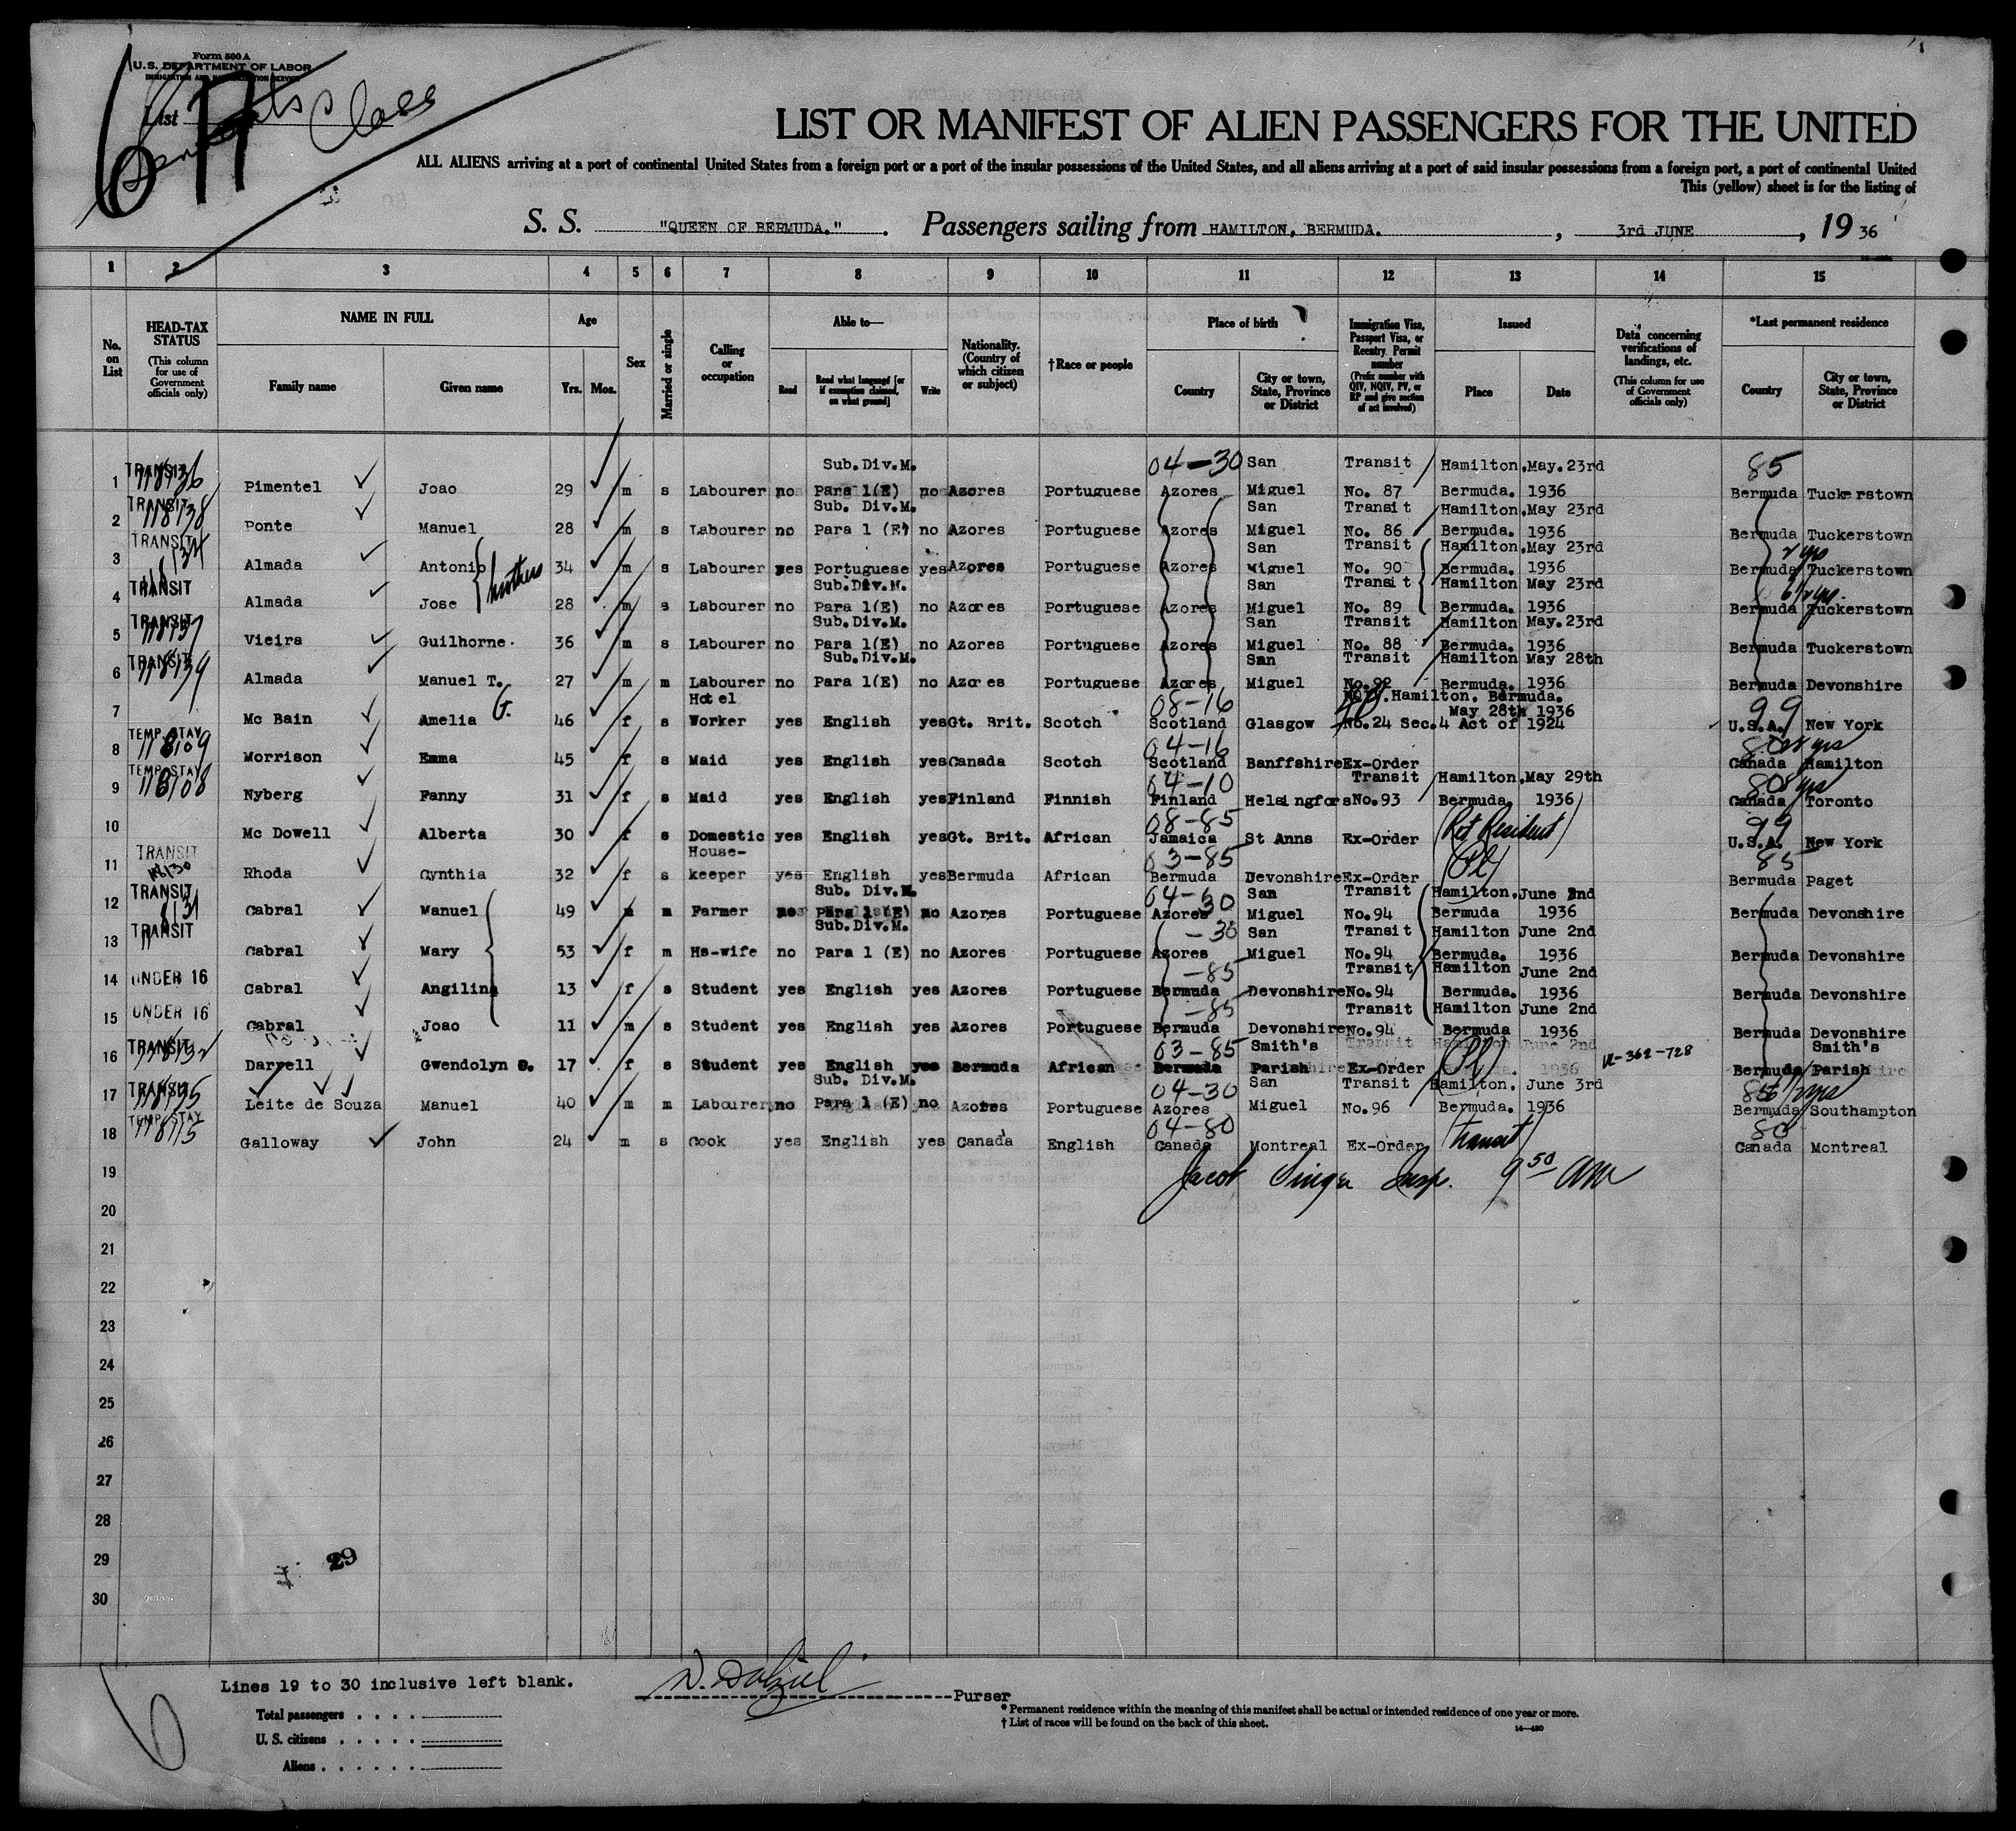 Form 500 A
U.S. DEPARTMENT OF LABOR
IMMIGRATION AND NATURALIZATION SERVICE
List
Class
LIST OR MANIFEST OF ALIEN PASSENGERS FOR THE UNITED
ALL ALIENS arriving at a port of continental United States from a foreign port or a part of the insular possessions of the United States, and all aliens arriving at a port of said insular possessions from a foreign port, a part of continental United
This (yellow) sheet is for the listing of
S. S. "QUEEN OF BERMUDA." . Passengers sailing from HAMILTON, BERMUDA. , 3rd JUNE , 19 36
1 2 3 4 5 6 7 8 9 10 11 12 13 14 15
No. on List
HEAD-TAX STATUS (This column for use of Government officials only)
NAME IN FULL Family name Given name
Age Yrs. Mos.
Sex
Married or single
Calling or occupation
Able to— Read Read what language [or if exemption claimed, on what ground] Write
Nationality. (Country of which citizen or subject)
†Race or people
Place of birth Country City or town, State, Province or District
Immigration Visa, Passport Visa, or Reentry Permit number (Prefix number with QIV, NQIV, PV, or RP and give section of act involved)
Issued Place Date
Data concerning verifications of landings, etc. (This column for use of Government officials only)
*Last permanent residence Country City or town, State, Province or District
TRANSIT Sub. Div. M. 04-30 San Transit Hamilton, May. 23rd 85
1 Pimentel Joao 29 m s Labourer no Para 1(E) no Azores Portuguese Azores Miguel No. 87 Bermuda. 1936 Bermuda Tuckerstown
TRANSIT 118138 Sub. Div. M. San Transit Hamilton, May 23rd
2 Ponte Manuel 28 m s Labourer no Para 1 (E) no Azores Portuguese Azores Miguel No. 86 Bermuda. 1936 Bermuda Tuckerstown
TRANSIT San Transit Hamilton, May 23rd 2 yrs
3 Almada Antonio brothers 34 m s Labourer yes Portuguese yes Azores Portuguese Azores Miguel No. 90 Bermuda. 1936 Bermuda Tuckerstown
TRANSIT Sub. Div. M. San Transit Hamilton May 23rd
4 Almada Jose 28 m s Labourer no Para 1(E) no Azores Portuguese Azores Miguel No. 89 Bermuda. 1936 Bermuda Tuckerstown
TRANSIT 118137 Sub. Div. M. San Transit Hamilton May. 23rd
5 Vieira Guilhorne. 36 m s Labourer no Para 1(E) no Azores Portuguese Azores Miguel No. 88 Bermuda. 1936 Bermuda Tuckerstown
TRANSIT 118139 Sub. Div. M. San Transit Hamilton May 28th
6 Almada Manuel T. 27 m m Labourer no Para 1(E) no Azores Portuguese Azores Miguel No. 92 Bermuda. 1936 Bermuda Devonshire
Hotel 08-16 Hamilton, Bermuda. May 28th 1936 99
7 Mc Bain Amelia G. 46 f s Worker yes English yes Gt. Brit. Scotch Scotland Glasgow No. 24 Sec. 4 Act of 1924 U.S.A. New York
TEMP. STAY 118109 04-16
8 Morrison Emma 45 f s Maid yes English yes Canada Scotch Scotland Banffshire Ex-Order Canada Hamilton
TEMP. STAY 118108 04-10 Transit Hamilton, May 29th
9 Nyberg Fanny 31 f s Maid yes English yes Finland Finnish Finland Helsingfors No. 93 Bermuda. 1936 Canada Toronto
08-85 99
10 Mc Dowell Alberta 30 f s Domestic yes English yes Gt. Brit. African Jamaica St Anns Ex-Order (Ret Resident) U.S.A. New York
TRANSIT House- 03-85 85
11 Rhoda Cynthia 32 f s keeper yes English yes Bermuda African Bermuda Devonshire Ex-Order Bermuda Paget
TRANSIT Sub. Div. M. 04-30 San Transit Hamilton, June 2nd
12 Cabral Manuel 49 m m Farmer no Para 1 (E) no Azores Portuguese Azores Miguel No. 94 Bermuda 1936 Bermuda Devonshire
TRANSIT Sub. Div. M. -30 San Transit Hamilton June 2nd
13 Cabral Mary 53 f m Hs-wife no Para 1 (E) no Azores Portuguese Azores Miguel No. 94 Bermuda. 1936 Bermuda Devonshire
UNDER 16 -85 Transit Hamilton June 2nd
14 Cabral Angilina 13 f s Student yes English yes Azores Portuguese Bermuda Devonshire No. 94 Bermuda. 1936 Bermuda Devonshire
UNDER 16 -85 Transit Hamilton June 2nd
15 Cabral Joao 11 m s Student yes English yes Azores Portuguese Bermuda Devonshire No. 94 Bermuda 1936 Bermuda Devonshire
TRANSIT 03-85 Smith's Smith's
16 Darrell Gwendolyn 17 f s Student yes English yes Bermuda African Bermuda Parish Ex-Order Bermuda Parish
TRANSIT 118135 Sub. Div. M. 04-30 San Transit Hamilton. June 3rd
17 Leite de Souza Manuel 40 m m Labourer no Para 1 (E) no Azores Portuguese Azores Miguel No. 96 Bermuda. 1936 Bermuda Southampton
TEMP STAY 118115 04-80 80
18 Galloway John 24 m s Cook yes English yes Canada English Canada Montreal Ex-Order (Transit) Canada Montreal
19 Jacob Singer Insp. 9 50 AM
20
21
22
23
24
25
26
27
28
29 29
30
Lines 19 to 30 inclusive left blank.
Purser
Total passengers
U. S. citizens
Aliens
* Permanent residence within the meaning of this manifest shall be actual or intended residence of one year or more.
† List of races will be found on the back of this sheet.
14-430